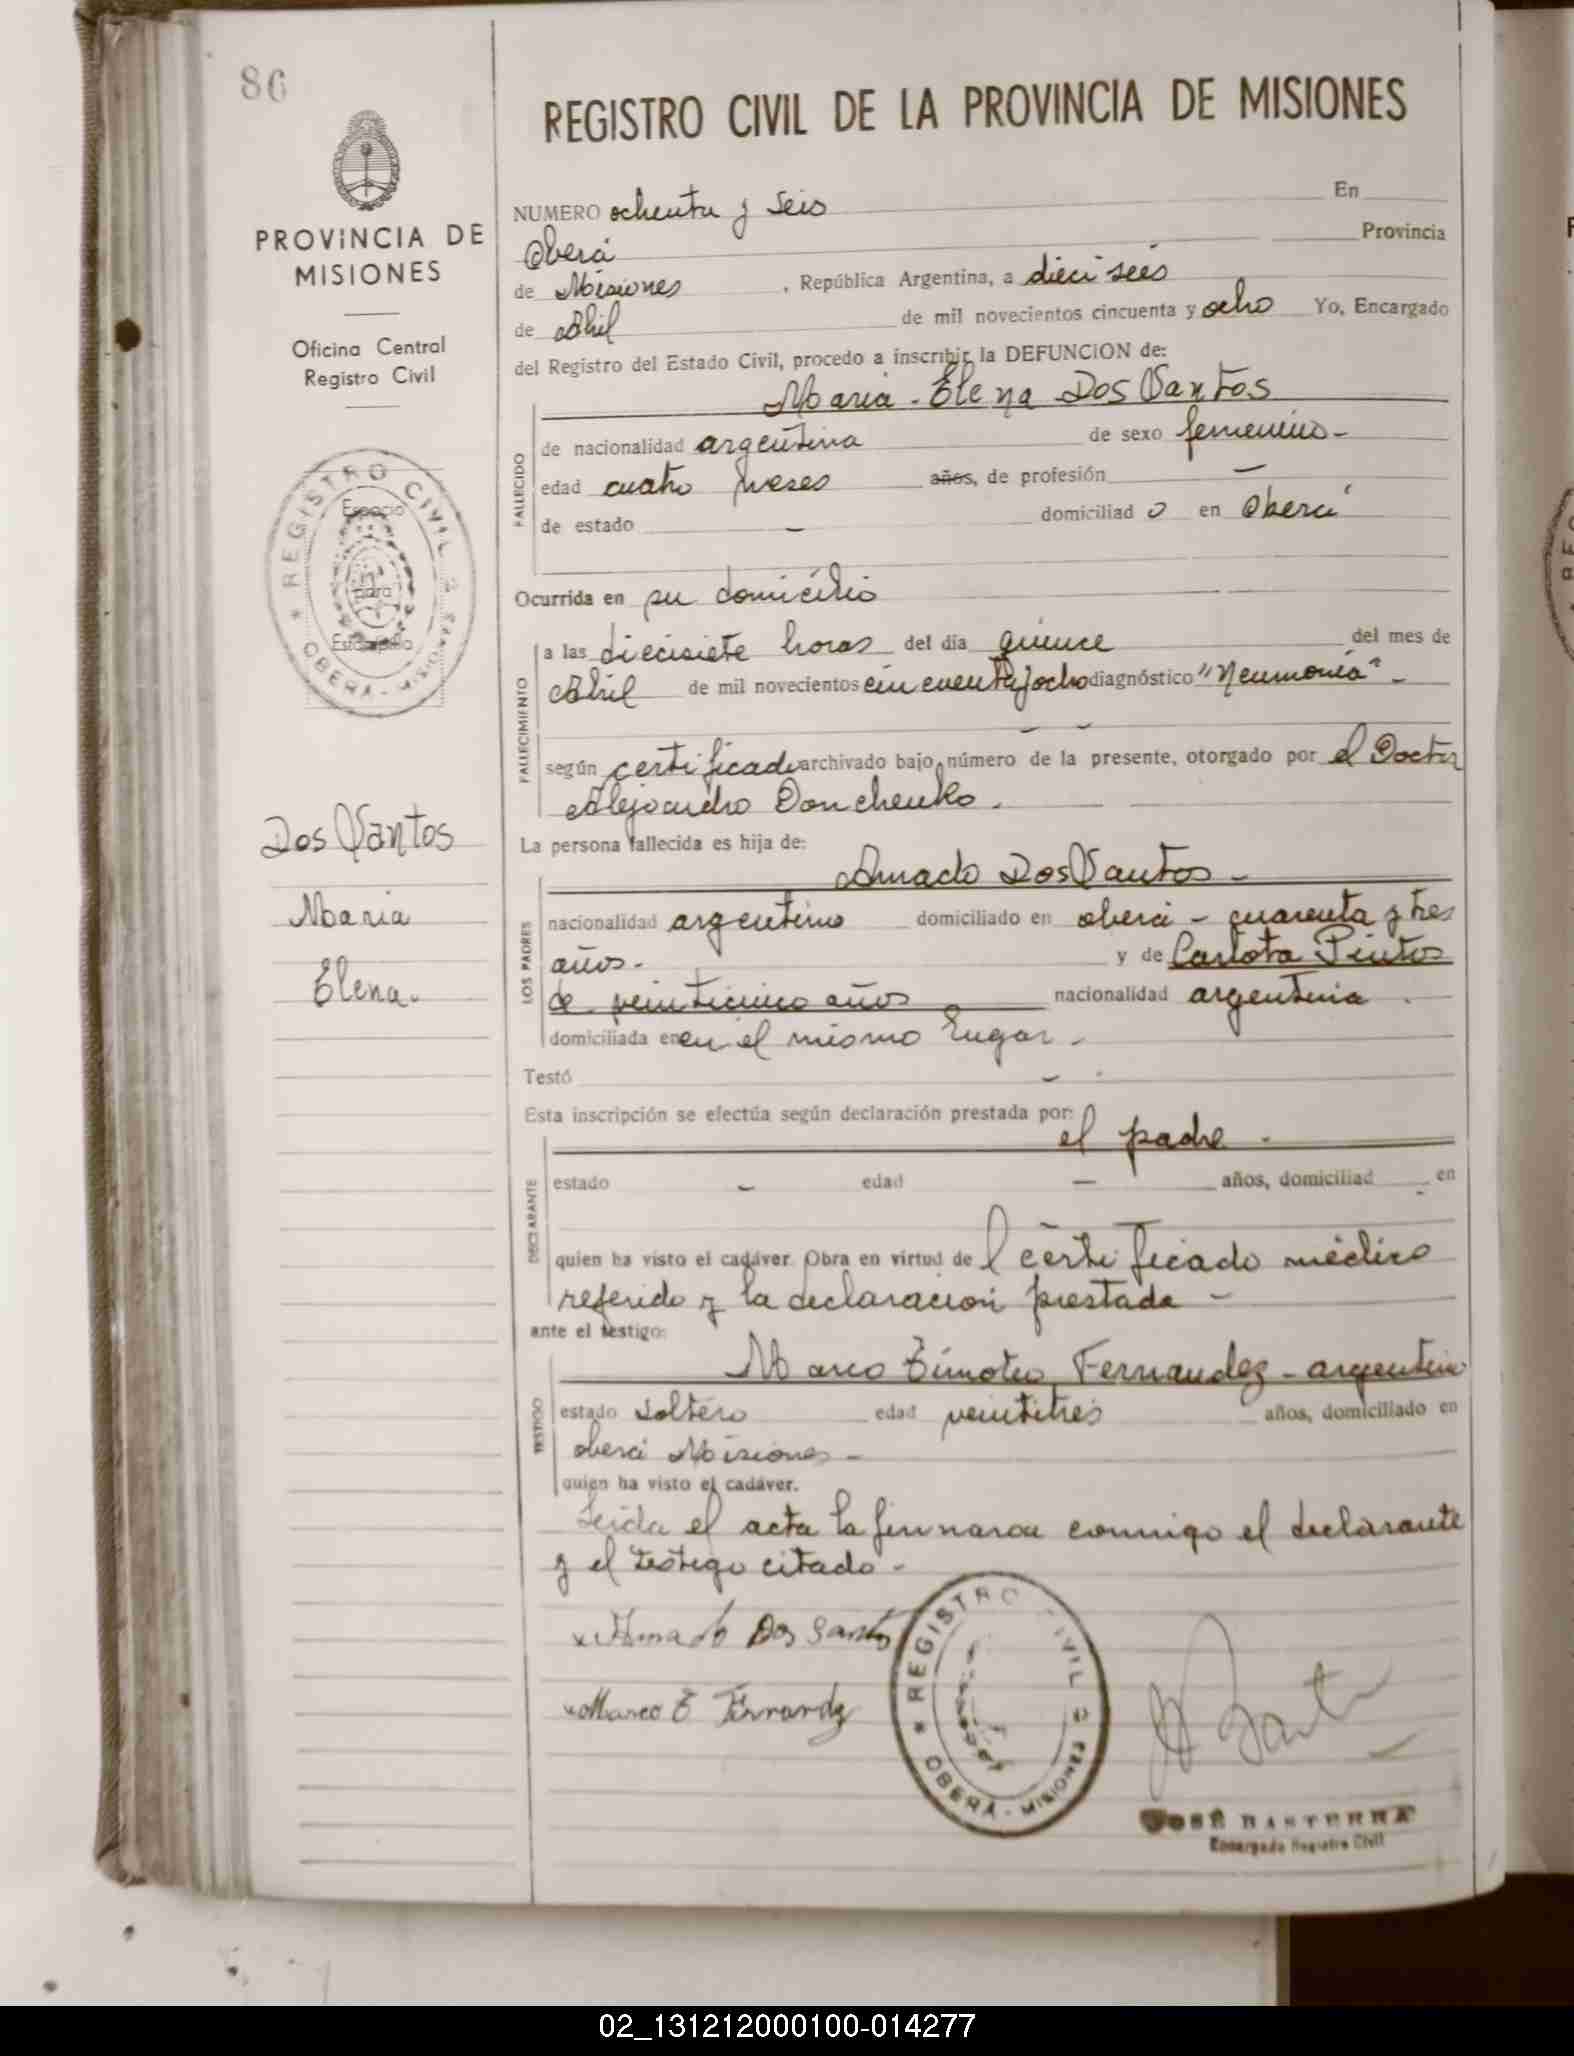 86
PROVINCIA DE
MISIONES
Oficina Central
Registro Civil
REGISTRO CIVIL OBERÁ - MISIONES
Espacio
para
Estampilla
Dos Santos
Maria
Elena.
REGISTRO CIVIL DE LA PROVINCIA DE MISIONES
NUMERO ochenta y seis En
Oberá Provincia
de Misiones , República Argentina, a dieciseis
de Abril de mil novecientos cincuenta y ocho Yo, Encargado
del Registro del Estado Civil, procedo a inscribir la DEFUNCION de:
Maria - Elena Dos Santos
FALLECIDO
de nacionalidad argentina de sexo femenino -
edad cuatro meses años, de profesión —
de estado — domiciliad o en Oberá
Ocurrida en su domicilio
FALLECIMIENTO
a las diecisiete horas del día quince del mes de
Abril de mil novecientos cincuenta y ocho diagnóstico "Neumonía" -
según certificado archivado bajo número de la presente, otorgado por el Doctor
Alejandro Donchenko .
La persona fallecida es hija de:
Amado Dos Santos -
LOS PADRES
nacionalidad argentino domiciliado en oberá - cuarenta y tres
años - y de Carlota Pintos
de veinticinco años nacionalidad argentina .
domiciliada en en el mismo lugar -
Testó —
Esta inscripción se efectúa según declaración prestada por:
el padre -
DECLARANTE
estado — edad — años, domiciliad - en
quien ha visto el cadáver. Obra en virtud de l certificado médico
referido y la declaracion prestada -
ante el testigo:
Marco Timoteo Fernandez - argentino
TESTIGO
estado soltero edad veintitres años, domiciliado en
oberá Misiones -
quien ha visto el cadáver.
Leida el acta la firmaron conmigo el declarante
y el testigo citado -
x Amado Dos Santos
x Marco T Fernandz
REGISTRO CIVIL OBERÁ - MISIONES
JOSÉ BASTERRA
Encargado Registro Civil
02_131212000100-014277